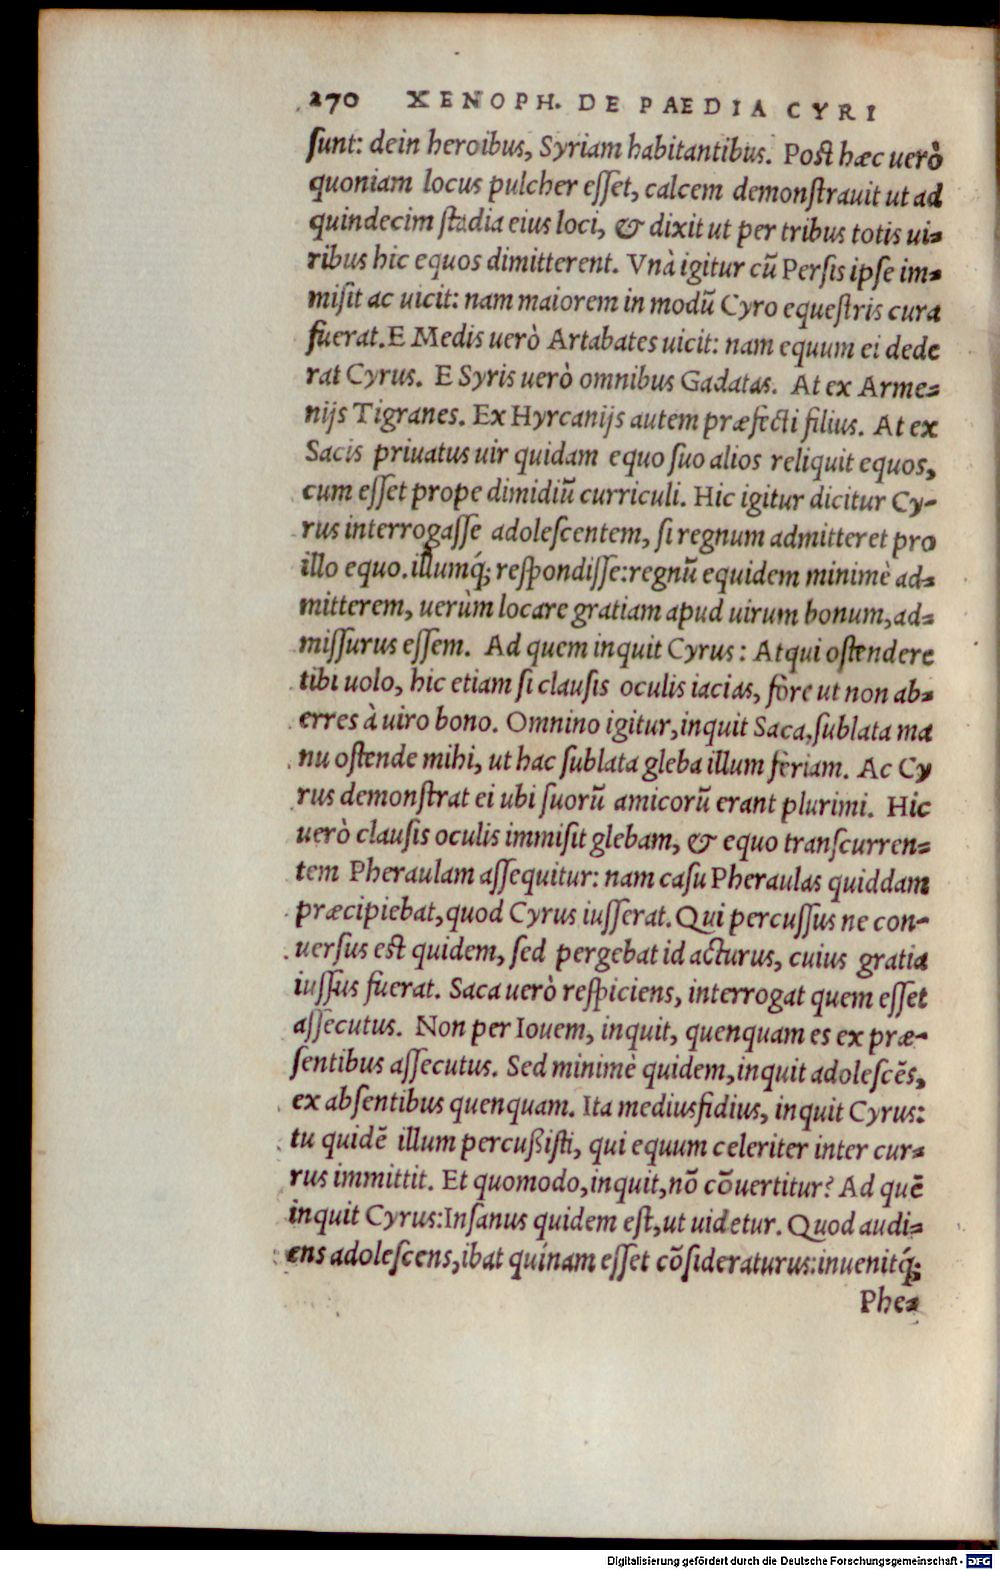 270 XENOPH. DE PAEDIA CYRI
ſunt: dein heroibus, Syriam habitantibus. Post hæc uerò
quoniam locus pulcher eſſet, calcem demonſtrauit ut ad
quindecim ſtadia eius loci, & dixit ut per tribus totis ui-
ribus hic equos dimitterent. Vnà igitur cū Persis ipſe im-
miſit ac uicit: nam maiorem in modū Cyro equeſtris cura
fuerat. E Medis uerò Artabates uicit: nam equum ei dede
rat Cyrus. E Syris uerò omnibus Gadatas. At ex Arme-
nijs Tigranes. Ex Hyrcanijs autem præfecti filius. At ex
Sacis priuatus uir quidam equo ſuo alios reliquit equos,
cum eſſet prope dimidiū curriculi. Hic igitur dicitur Cy-
rus interrogaſſe adoleſcentem, ſi regnum admitteret pro
illo equo. illumq́; reſpondiſſe: regnū equidem minimè ad-
mitterem, uerùm locare gratiam apud uirum bonum, ad-
miſſurus eſſem. Ad quem inquit Cyrus: Atqui oſtendere
tibi uolo, hic etiam ſi clauſis oculis iacias, fore ut non ab-
erres à uiro bono. Omnino igitur, inquit Saca, ſublata ma
nu oſtende mihi, ut hac ſublata gleba illum feriam. Ac Cy
rus demonſtrat ei ubi ſuorū amicorū erant plurimi. Hic
uerò clauſis oculis immiſit glebam, & equo tranſcurren-
tem Pheraulam aſſequitur: nam caſu Pheraulas quiddam
præcipiebat, quod Cyrus iuſſerat. Qui percuſſus ne con-
uerſus eſt quidem, ſed pergebat id acturus, cuius gratia
iuſſus fuerat. Saca uerò reſpiciens, interrogat quem eſſet
aſſecutus. Non per Iouem, inquit, quenquam es ex præ-
ſentibus aſſecutus. Sed minimè quidem, inquit adoleſcēs,
ex abſentibus quenquam. Ita mediusfidius, inquit Cyrus:
tu quidē illum percußiſti, qui equum celeriter inter cur-
rus immittit. Et quomodo, inquit, nō cōuertitur? Ad quē
inquit Cyrus: Inſanus quidem eſt, ut uidetur. Quod audi-
ens adoleſcens, ibat quínam eſſet cōſideraturus: inuenitq́;
Phe-
Digitalisierung gefördert durch die Deutsche Forschungsgemeinschaft - DFG